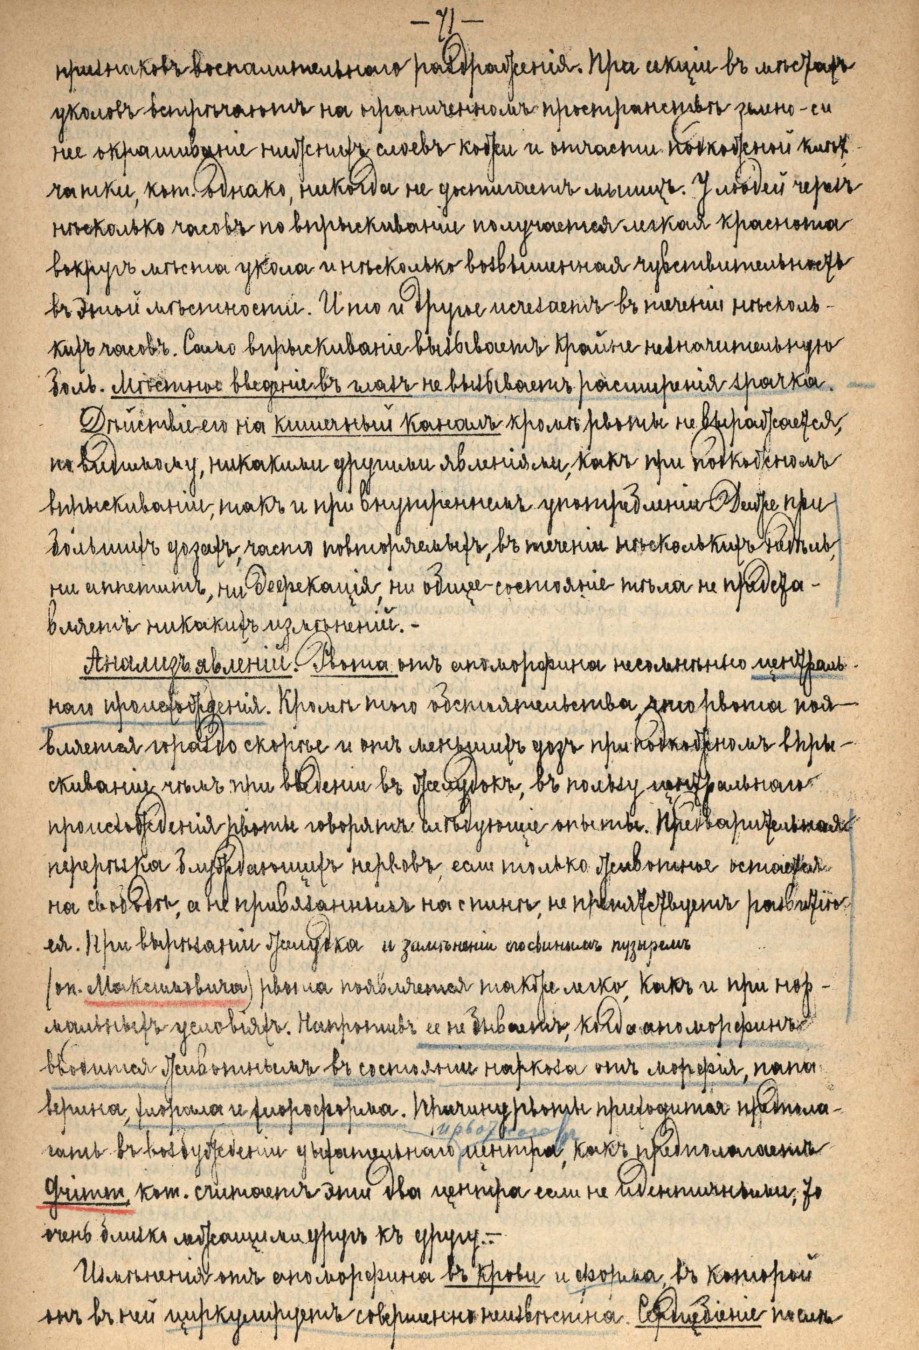 — 71 —
признаковъ воспалительнаго раздраженія. При секціи въ мѣстахъ
уколовъ встрѣчаютъ на ограниченномъ пространствѣ зелено-си
нее окрашиваніе нижнихъ слоевъ кожи и отчасти подкожной клѣт-
чатки, кот. однако, никогда не достигаетъ мышцъ. У людей черезъ
нѣсколько часовъ по впрыскиваніи получается легкая краснота
вокругъ мѣста укола и нѣсколько возвышенная чувствительность
въ этой мѣстности. И то и другое исчезаетъ въ теченіи нѣсколь-
кихъ часовъ. Само впрыскиваніе вызываетъ крайне незначительную
боль. Мѣстное введеніе въ глазъ не вызываетъ расширенія зрачка.
Дѣйствіе его на кишечный каналъ кромѣ рвоты не выражается,
по видимому, никакими другими явленіями, какъ при подкожномъ
впрыскиваніи, такъ и при внутреннемъ употребленіи. Даже при
большихъ дозахъ, часто повторяемыхъ, въ теченіи нѣсколькихъ недѣль,
ни аппетитъ, ни дефекація, ни общее состояніе тѣла не предста-
вляетъ никакихъ измѣненій. -
Анализъ явленій. Рвота отъ апоморфина несомнѣнно централь-
наго происхожденія. Кромѣ того обстоятельства, что рвота поя-
вляется гораздо скорѣе и отъ меньшихъ дозъ при подкожномъ впры-
скиваніи, чѣмъ при введеніи въ желудокъ, въ пользу центральнаго
происхожденія рвоты говорятъ слѣдующіе опыты. Предварительная
перерѣзка блуждающихъ нервовъ, если только животное остается
на свободѣ, а не привязаннымъ на спинѣ, не препятствуетъ развитію
ея. При вырѣзаніи желудка и замѣненіи его свинымъ пузыремъ
(оп. Максимовича) рвота появляется также легко, какъ и при нор-
мальныхъ условіяхъ. Напротивъ ее не бываетъ, когда апоморфинъ
вводится животнымъ въ состояніе наркоза отъ морфія, папа
верина, хлорала и хлороформа. Причину рвоты приходится предпола-
и рвотнаго
гать въ возбужденіи дыхательнаго центра, какъ предполагаетъ
Grimm, кот. считаетъ эти два центра если не идентичными, то
очень близко лежащими другъ къ другу. -
Измѣненія отъ апоморфина въ крови и форма, въ которой
онъ въ ней циркулируетъ совершенно неизвѣстна. Сердцебіеніе послѣ